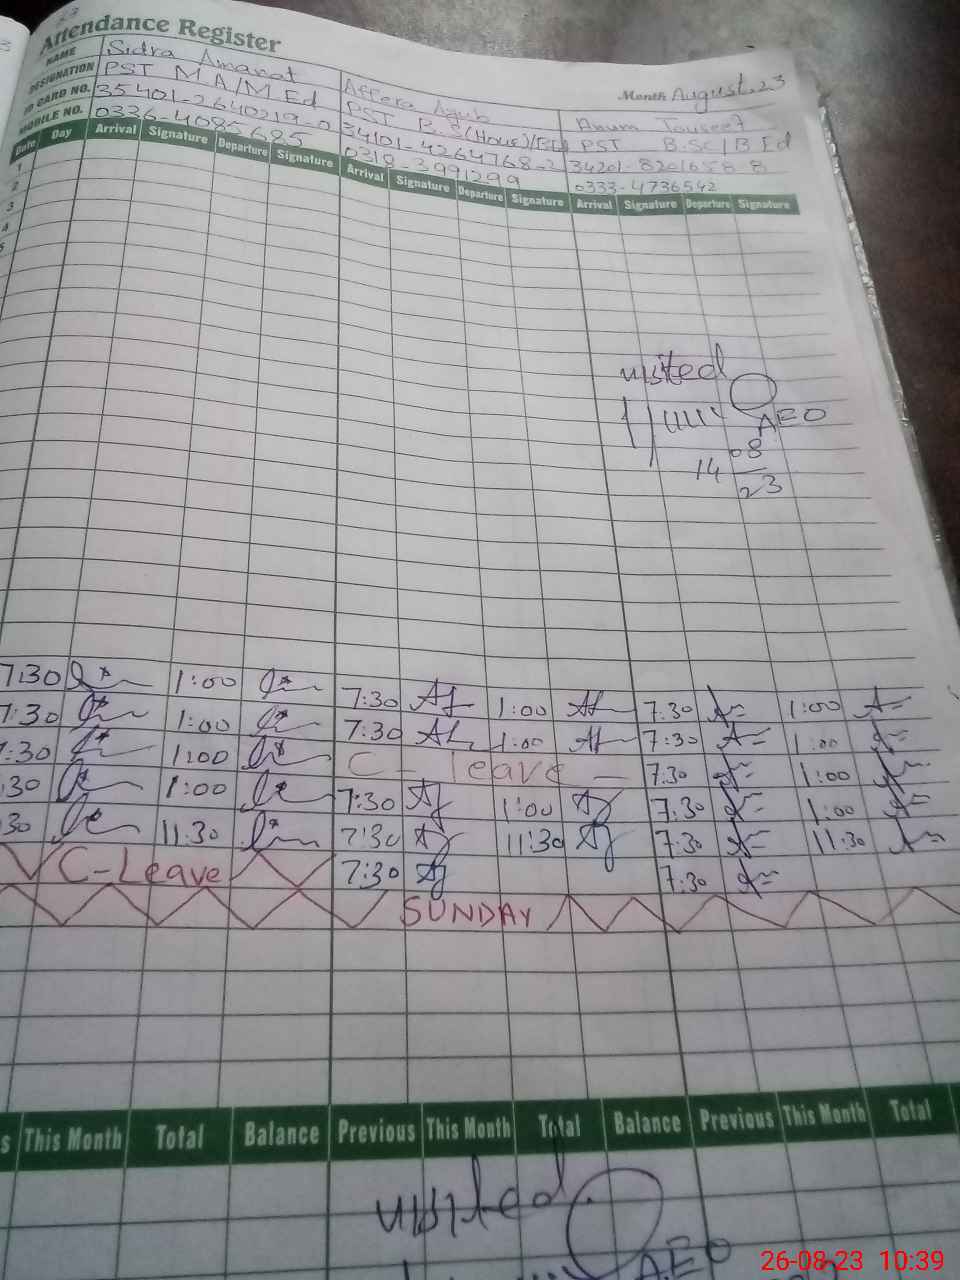 Attendance Register
Month August, 23
NAME Sidra Amanat
DESIGNATION PST M A/M Ed PST B.S(Hons)/B.Ed PST B.Sc/B Ed
CARD NO. 35401-2640219-0 34101-4264768-2 34201-8201658 8
MOBILE NO. 0336-4085685 0318-3991299 0333-4736542
Date Day Arrival Signature Departure Signature Arrival Signature Departure Signature Arrival Signature Departure Signature
1
2
3
4
5
visited
AEO
14 08
23
7:30 1:00 7:30 1:00 7:30 1:00
7:30 1:00 7:30 1:00 7:30 1:00
7:30 1:00 C - leave - 7:30 1:00
:30 1:00 7:30 1:00 7:30 1:00
30 11:30 7:30 11:30 7:30 11:30
C-Leave 7:30 7:30
SUNDAY
s This Month Total Balance Previous This Month Total Balance Previous This Month Total
visited
AEO
26-08-23 10:39